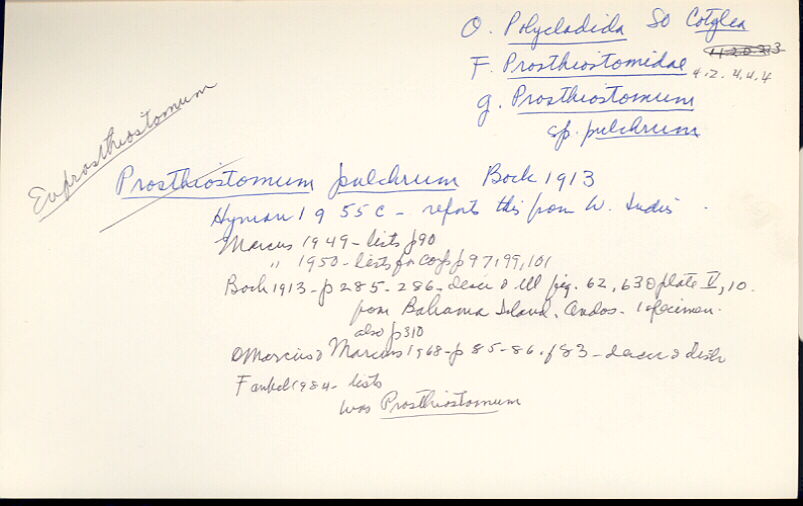 O. Polycladida SO Cotylea
F. Prosthiostomidae 4.2.4.4.4
g. Prosthiostomum
sp. pulchrum
Euprosthiostomum
Prosthiostomum pulchrum Bock 1913
Hyman 1955c - reports this from W. Indies.
Marcus 1949 - lists p90
" 1950 - lists for comp p97, 99, 101
Bock 1913 - p 285-286 - descr & ill fig. 62, 63 & plate V, 10.
from Bahama Island, Andos. 1 specimen.
also p310
Marcus & Marcus 1968 - p 85-86, f83 - descr & distr
Faubel 1984 - lists
was Prosthiostomum